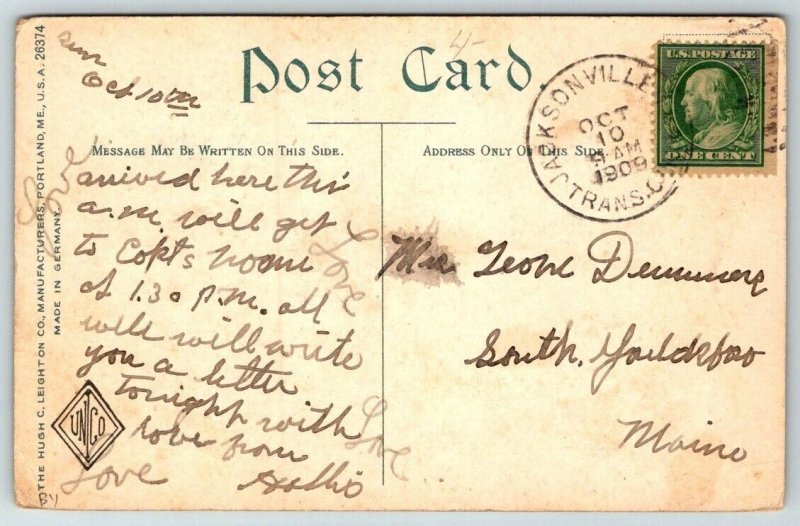 THE HUGH C. LEIGHTON CO., MANUFACTURERS, PORTLAND, ME., U.S.A. 26374
MADE IN GERMANY.
Post Card.
MESSAGE MAY BE WRITTEN ON THIS SIDE.
ADDRESS ONLY ON THIS SIDE.
JACKSONVILLE
OCT
10
AM
1909
TRANS. C
U.S. POSTAGE
ONE CENT
4
Oct 10th
arrived here this
a.m. will get
to Capt's
at 1.30 P.m. all
well will write
you a letter
tonight with
love from
Love
Love
Love
Love
Leone
South
Maine
UN Co
BY